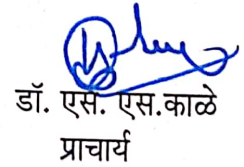 डॉ. एस. एस.काळे
प्राचार्य